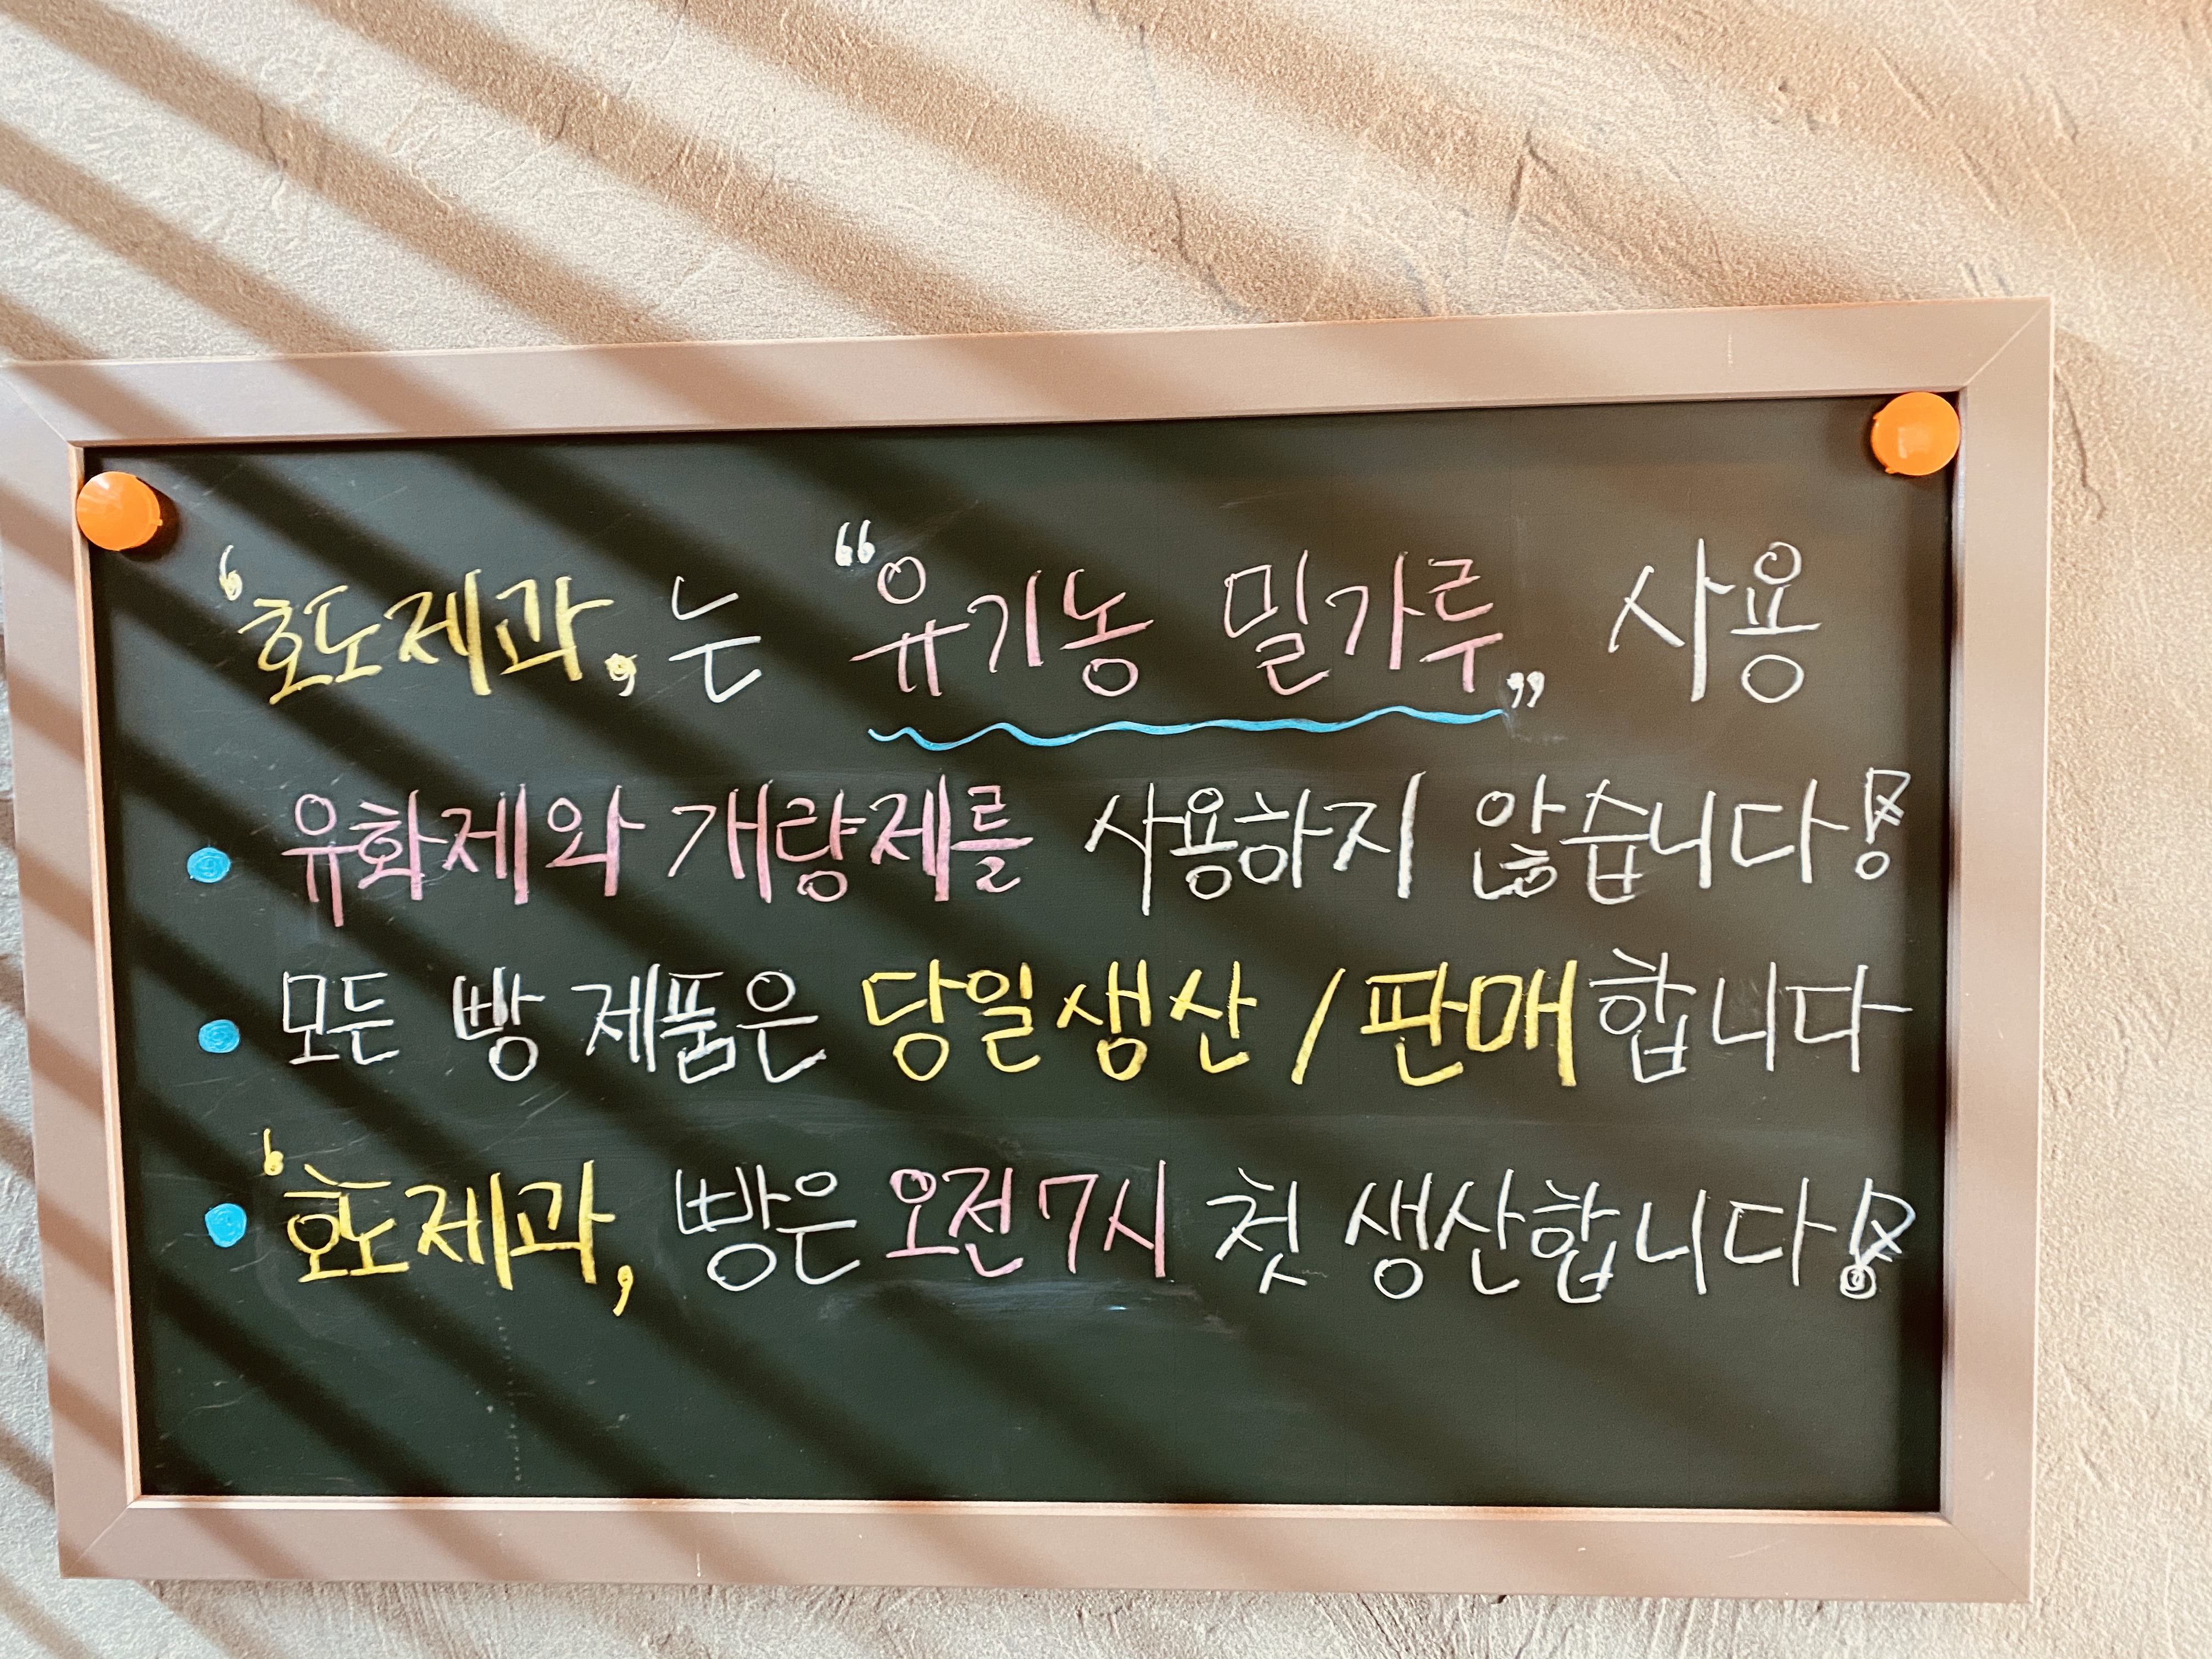 ‘효도제과’는 “유기농 밀가루” 사용
• 유화제와 개량제를 사용하지 않습니다!
• 모든 빵 제품은 당일생산 / 판매합니다
• ‘효도제과’ 빵은 오전7시 첫 생산합니다!